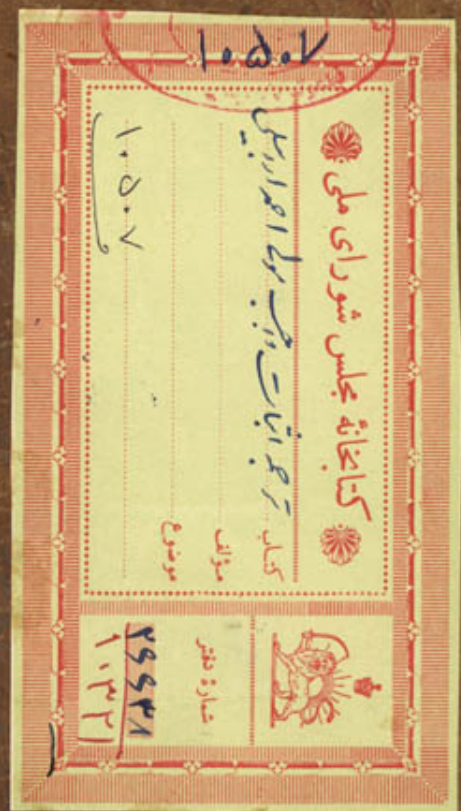 ۱۰۵۰۷
کتابخانهٔ مجلس شورای ملی
کتاب ترجمه اثبات واجب مولی احمد اردبیلی
مؤلف
موضوع
۱۰۵۰۷
شمارهٔ دفتر
۱۰۳۲۱